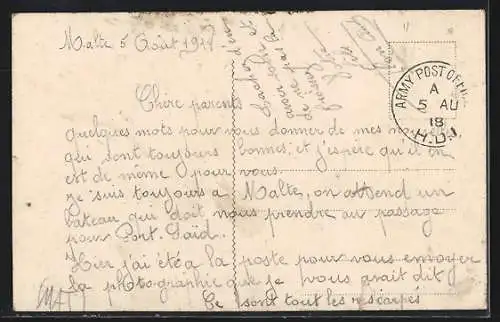 Malte 5 Août 1918
Chire parents
quelques mots pour vous donner de mes nouvelles
qui sont toujours bonnes, et j'espère qu'il en
est de meme pour vous.
je suis toujours a Malte, on attend un
bateau qui doit nous prendre au passage
pour Port-Saïd.
Hier j'ai été a la poste pour vous envoyer
la photographie que je vous avait dit
Ce sont tout les rescapés
ARMY POST OFFICE
A
5 AU
18
H.D.1